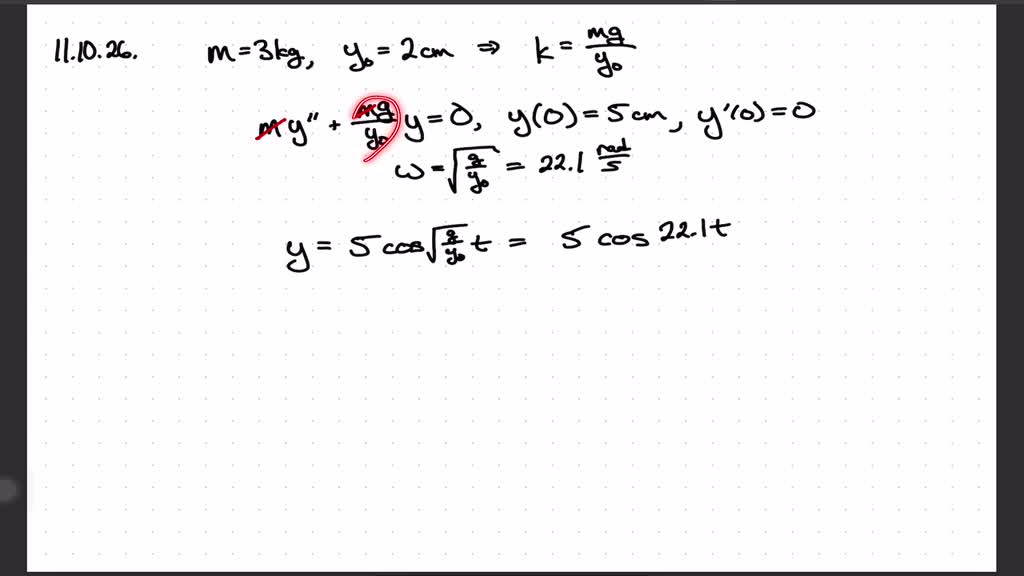 11.10.26. m=3kg, y₀=2cm ⇒ k=mg/y₀
my″ + mg/y₀ y=0, y(0)=5cm, y′(0)=0
ω=√(g/y₀) = 22.1 rad/s
y = 5 cos√(g/y₀) t = 5 cos 22.1t